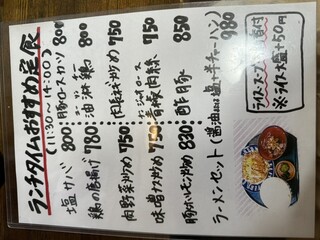 ランチタイムおすすめ定食
(11:30〜14:00)
豚ロースカツ 800
油淋鶏 800
肉長ネギ炒め 750
チンジャオロース
青椒肉絲 750
酢豚 850
塩サバ 800
鶏の唐揚げ 780
肉野菜炒め 750
味噌ナス炒め 750
豚ホルモン炒め 830
ラーメンセット(醤油or塩+半チャーハン) 980
ライス・スープ・お新香付
※ライス大盛+50円